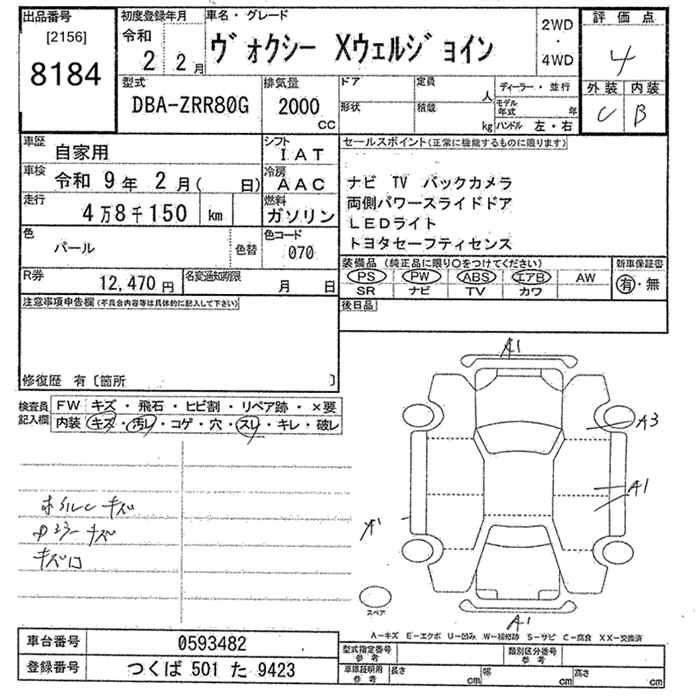 出品番号
[2156]
8184
初度登録年月
令和
2 2月
車名・グレード
ヴォクシー Xウェルジョイン
2WD
・
4WD
評価点
4
外装 内装
C B
型式
DBA-ZRR80G
排気量
2000
CC
ドア
形状
定員
人
積載
kg
ディーラー・並行
モデル年式 年
ハンドル 左・右
車歴
自家用
シフト
IAT
車検
令和 9年 2月( 日)
冷房
AAC
走行
4万8千150 km
燃料
ガソリン
色
パール
色替
色コード
070
R券
12,470円
名変通知期限
月 日
セールスポイント(正常に機能するものに限ります)
ナビ TV バックカメラ
両側パワースライドドア
LEDライト
トヨタセーフティセンス
装備品 (純正品に限り○をつけてください)
PS PW ABS エアB AW
SR ナビ TV カワ
新車保証書
有・無
後日品
注意事項申告欄(不具合内容等は具体的に記入して下さい)
修復歴 有〔箇所 〕
検査員記入欄
FW キズ・飛石・ヒビ割・リペア跡・×要
内装 キズ・汚レ・コゲ・穴・スレ・キレ・破レ
キズ
キズ
キズ
A1
A3
A1
A1
A1
スペア
A－キズ E－エクボ U－凹み W－補修跡 S－サビ C－腐食 XX－交換済
車台番号 0593482
登録番号 つくば 501 た 9423
型式指定番号
参考
類別区分番号
参考
車庫証明用
参考
長さ cm
幅 cm
高さ cm